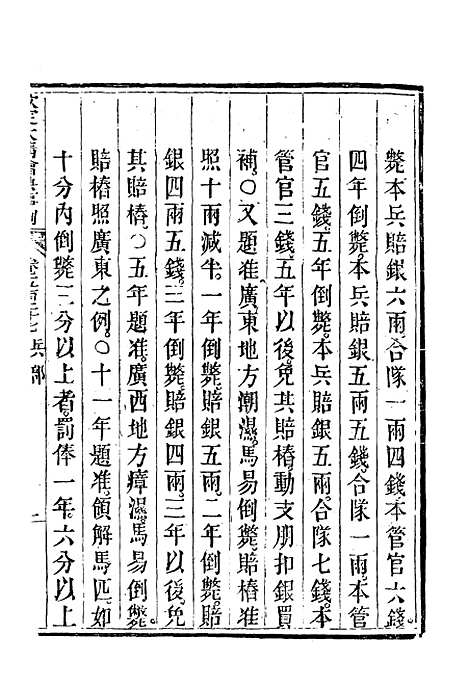 斃本兵賠銀六兩合隊一兩四錢本管官六錢
四年倒斃本兵賠銀五兩五錢合隊一兩本管
官五錢五年倒斃本兵賠銀五兩合隊七錢本
管官三錢五年以後免其賠樁動支朋扣銀買
補○又題准廣東地方潮濕馬易倒斃賠樁准
照十兩減半一年倒斃賠銀五兩二年倒斃賠
銀四兩五錢三年倒斃賠銀四兩三年以後免
其賠樁○五年題准廣西地方瘴濕馬易倒斃
賠樁照廣東之例○十一年題准領解馬匹如
十分內倒斃三分以上者罰俸一年六分以上
兵部